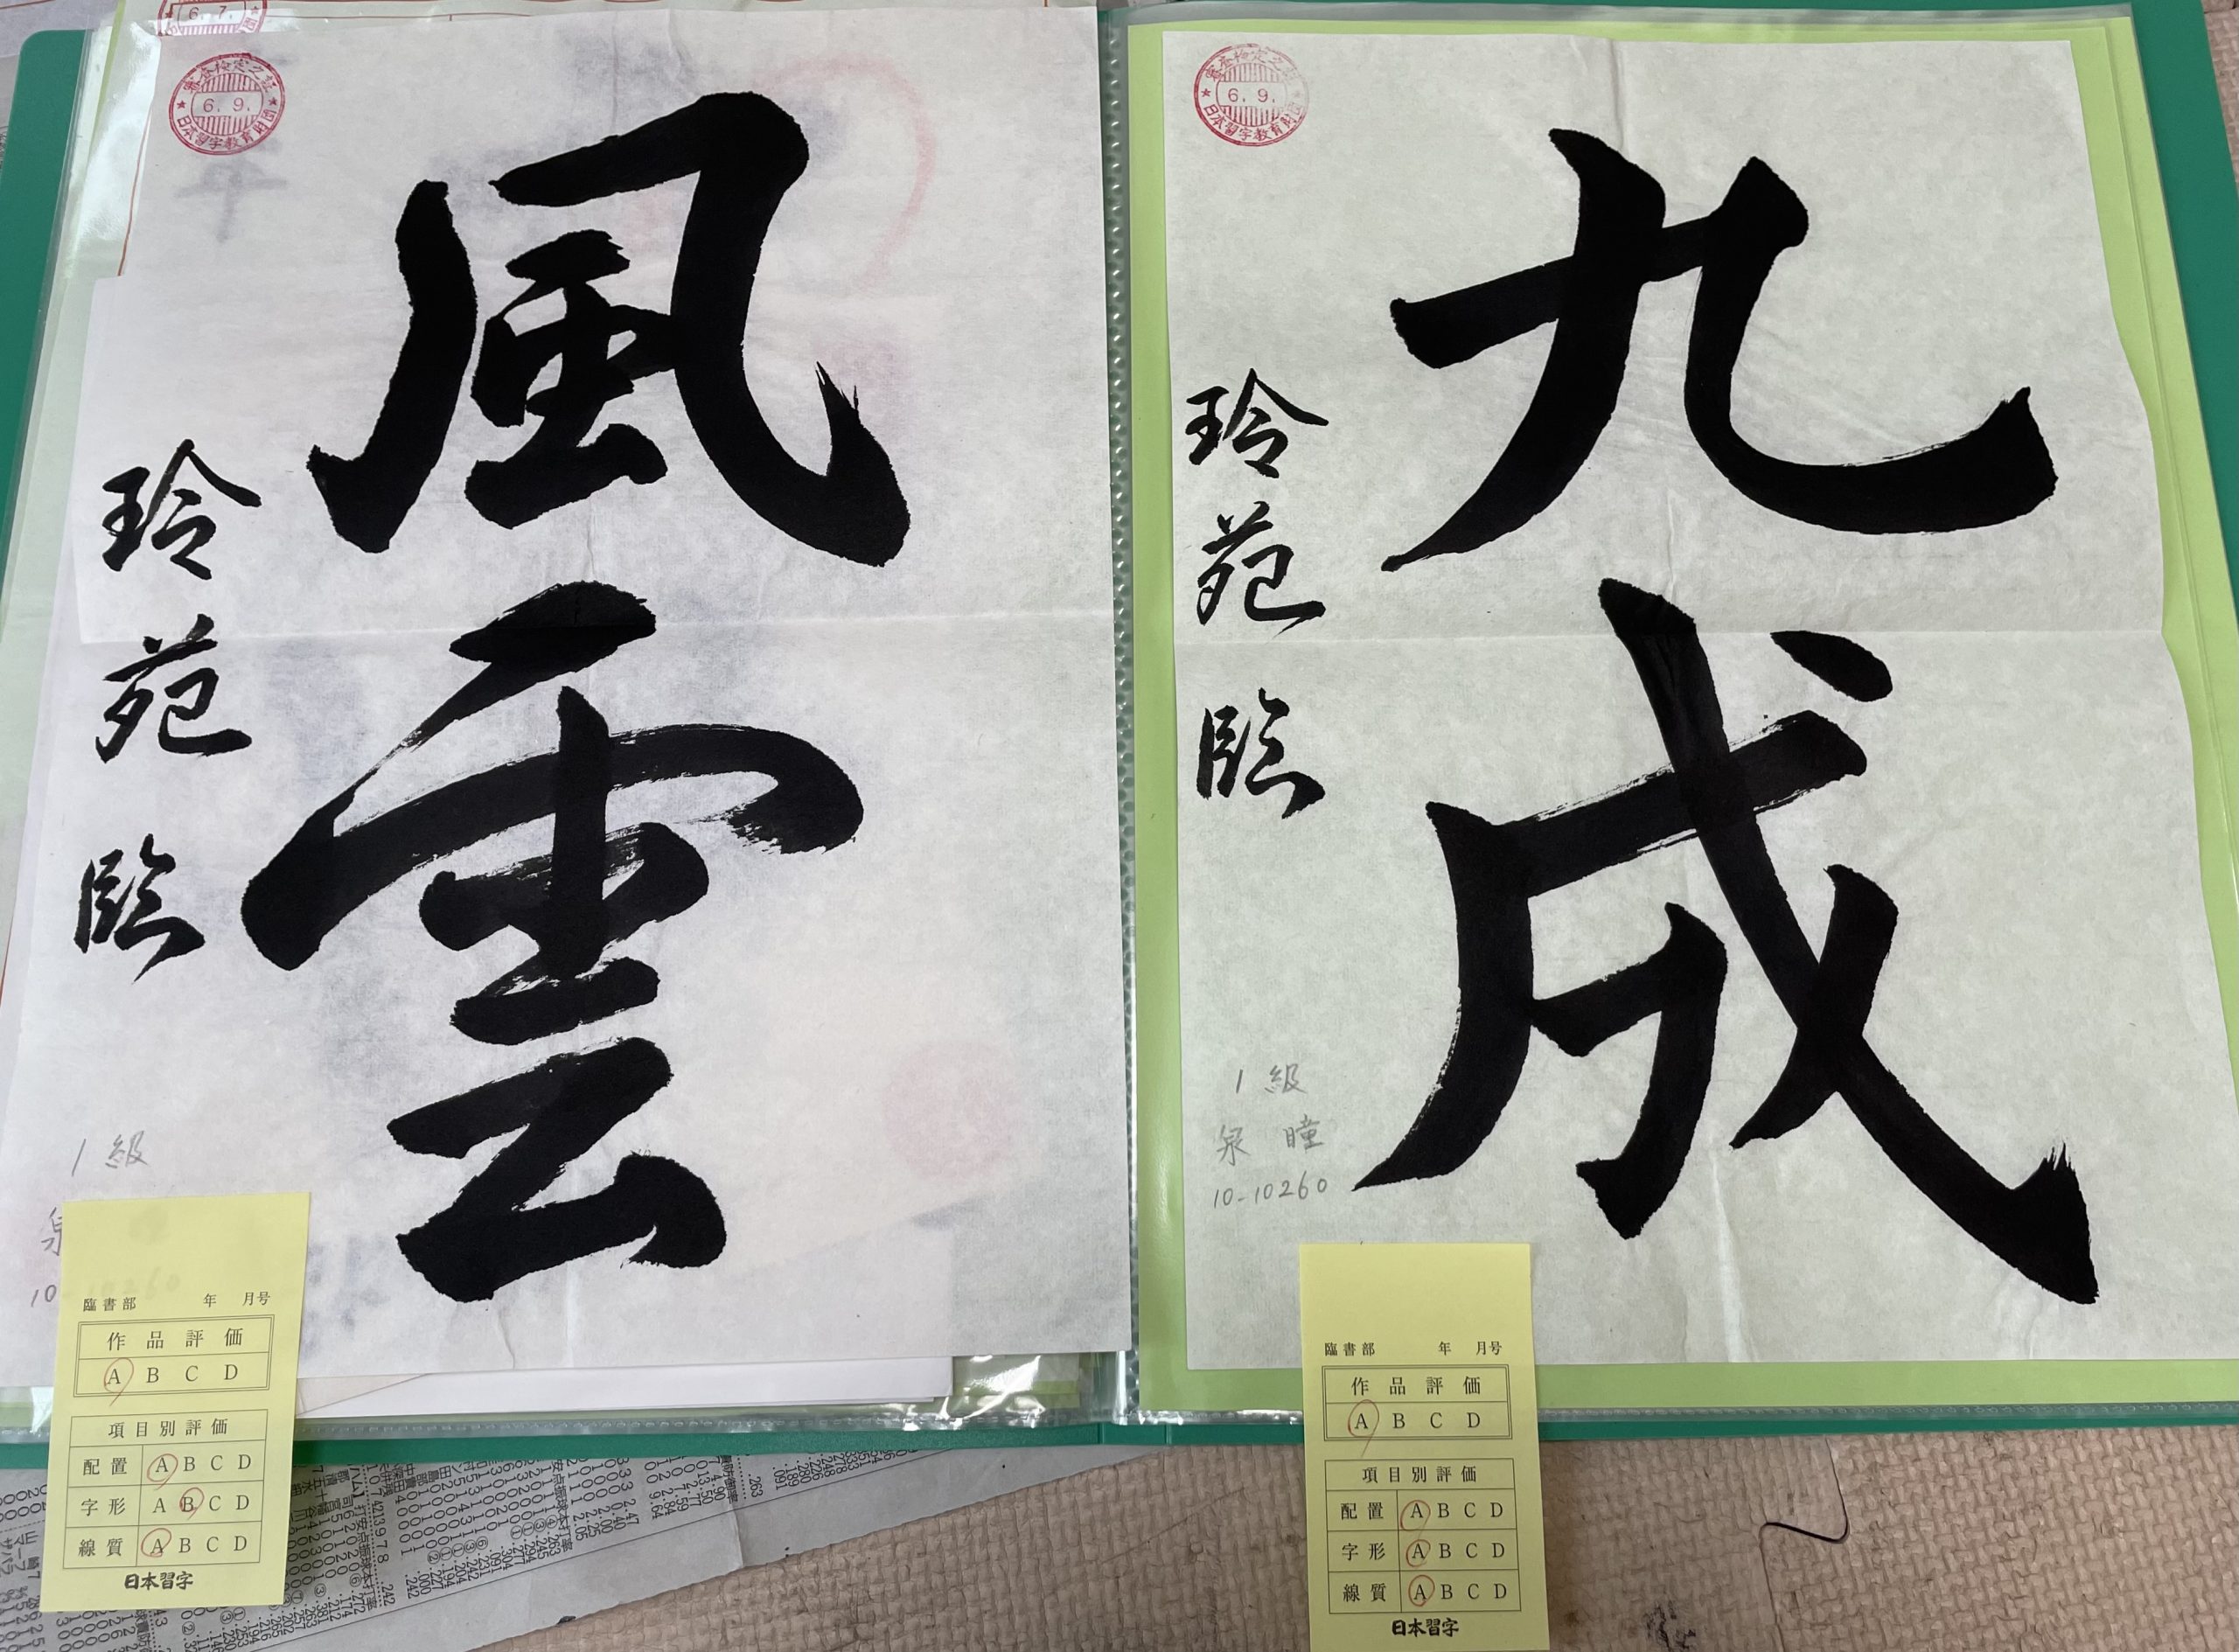 6. 7.
審査検定之証
6. 9.
日本習字教育財団
風雲
玲苑臨
1級
10
臨書部 年 月号
作品評価
A B C D
項目別評価
配置 A B C D
字形 A B C D
線質 A B C D
日本習字
審査検定之証
6. 9.
日本習字教育財団
九成
玲苑臨
1級
泉 瞳
10-10260
臨書部 年 月号
作品評価
A B C D
項目別評価
配置 A B C D
字形 A B C D
線質 A B C D
日本習字